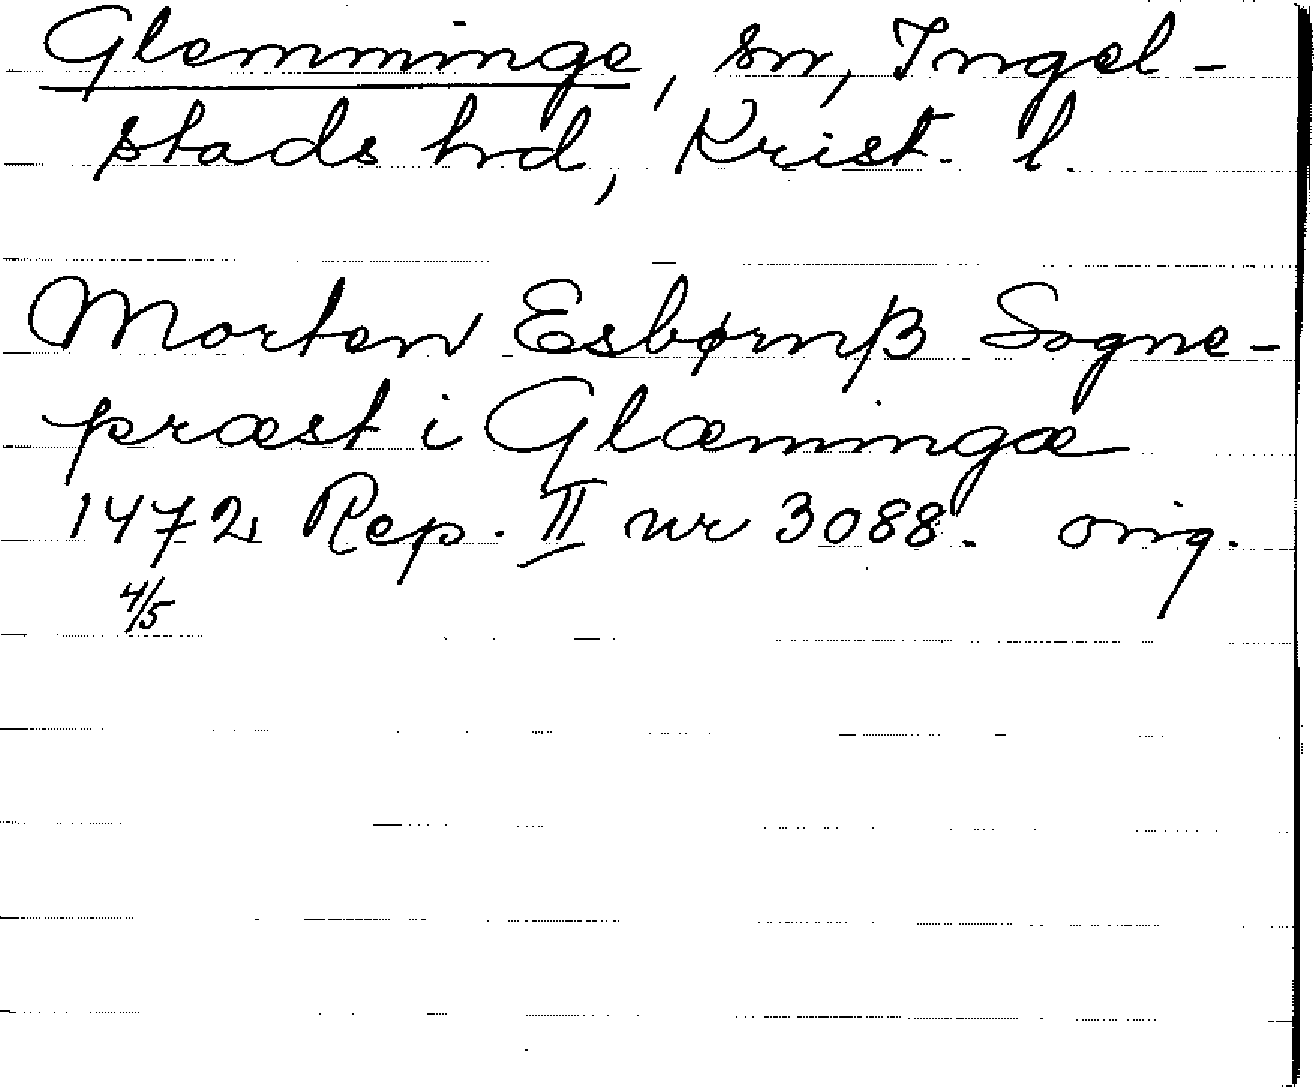 Glemminge, sn, Ingel-
stads hrd, Krist. l.
Morten Esbørnß Sogne-
præst i Glæmingæ
1472 Rep. II nr 3088. orig.
4/5